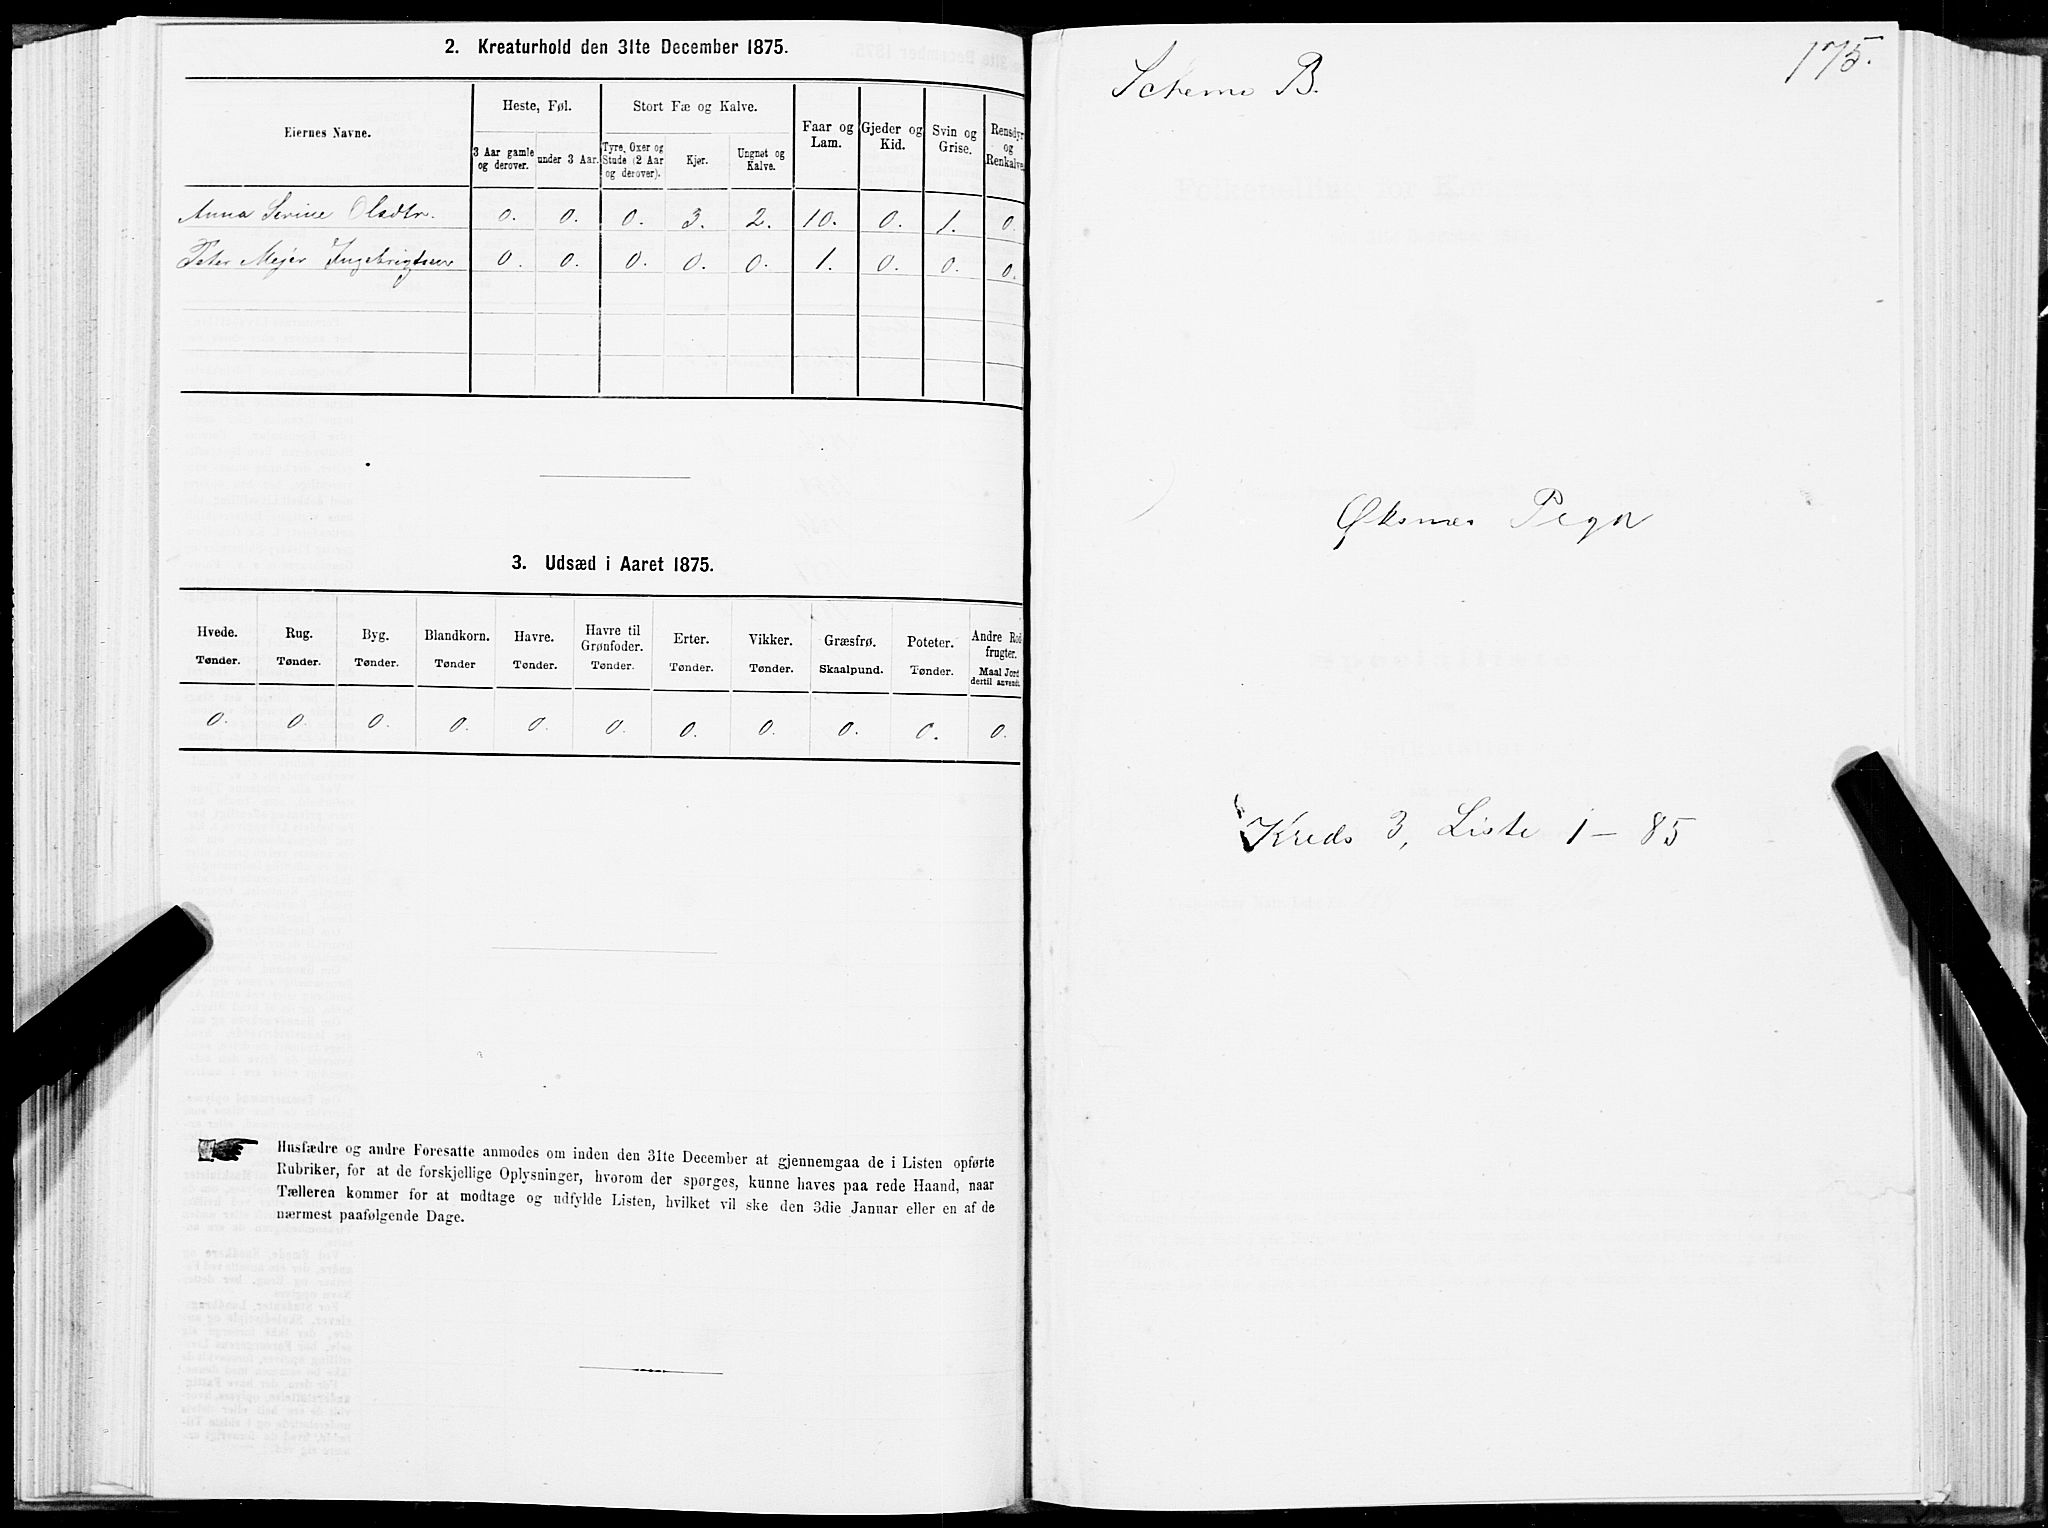 2. Kreaturhold den 31te December 1875.
Eiernes Navne.
Heste, Føl.
Stort Fæ og Kalve.
Faar og Lam.
Gjeder og Kid.
Svin og Grise.
Rensdyr og Renkalve
3 Aar gamle og derover.
under 3 Aar.
Tyre, Oxer og Stude (2 Aar og derover).
Kjør.
Ungnøt og Kalve.
Anna Serine Olsdtr. 0. 0. 0. 3. 2. 10. 0. 1. 0.
Peter Mejer Ingebrigtsen 0. 0. 0. 0. 0. 1. 0. 0. 0.
3. Udsæd i Aaret 1875.
Hvede. Rug. Byg. Blandkorn. Havre. Havre til Grønfoder. Erter. Vikker. Græsfrø. Poteter. Andre Rodfrugter.
Tønder. Tønder. Tønder. Tønder Tønder. Tønder. Tønder. Tønder. Skaalpund. Tønder. Maal Jord dertil anvendt.
0. 0. 0. 0. 0. 0. 0. 0. 0. 0. 0.
Husfædre og andre Foresatte anmodes om inden den 31te December at gjennemgaa de i Listen opførte
Rubriker, for at de forskjellige Oplysninger, hvorom der spørges, kunne haves paa rede Haand, naar
Tælleren kommer for at modtage og udfylde Listen, hvilket vil ske den 3die Januar eller en af de
nærmest paafølgende Dage.
175.
Schema B.
Øksnes Pregj
Kreds 3, Liste 1 – 85